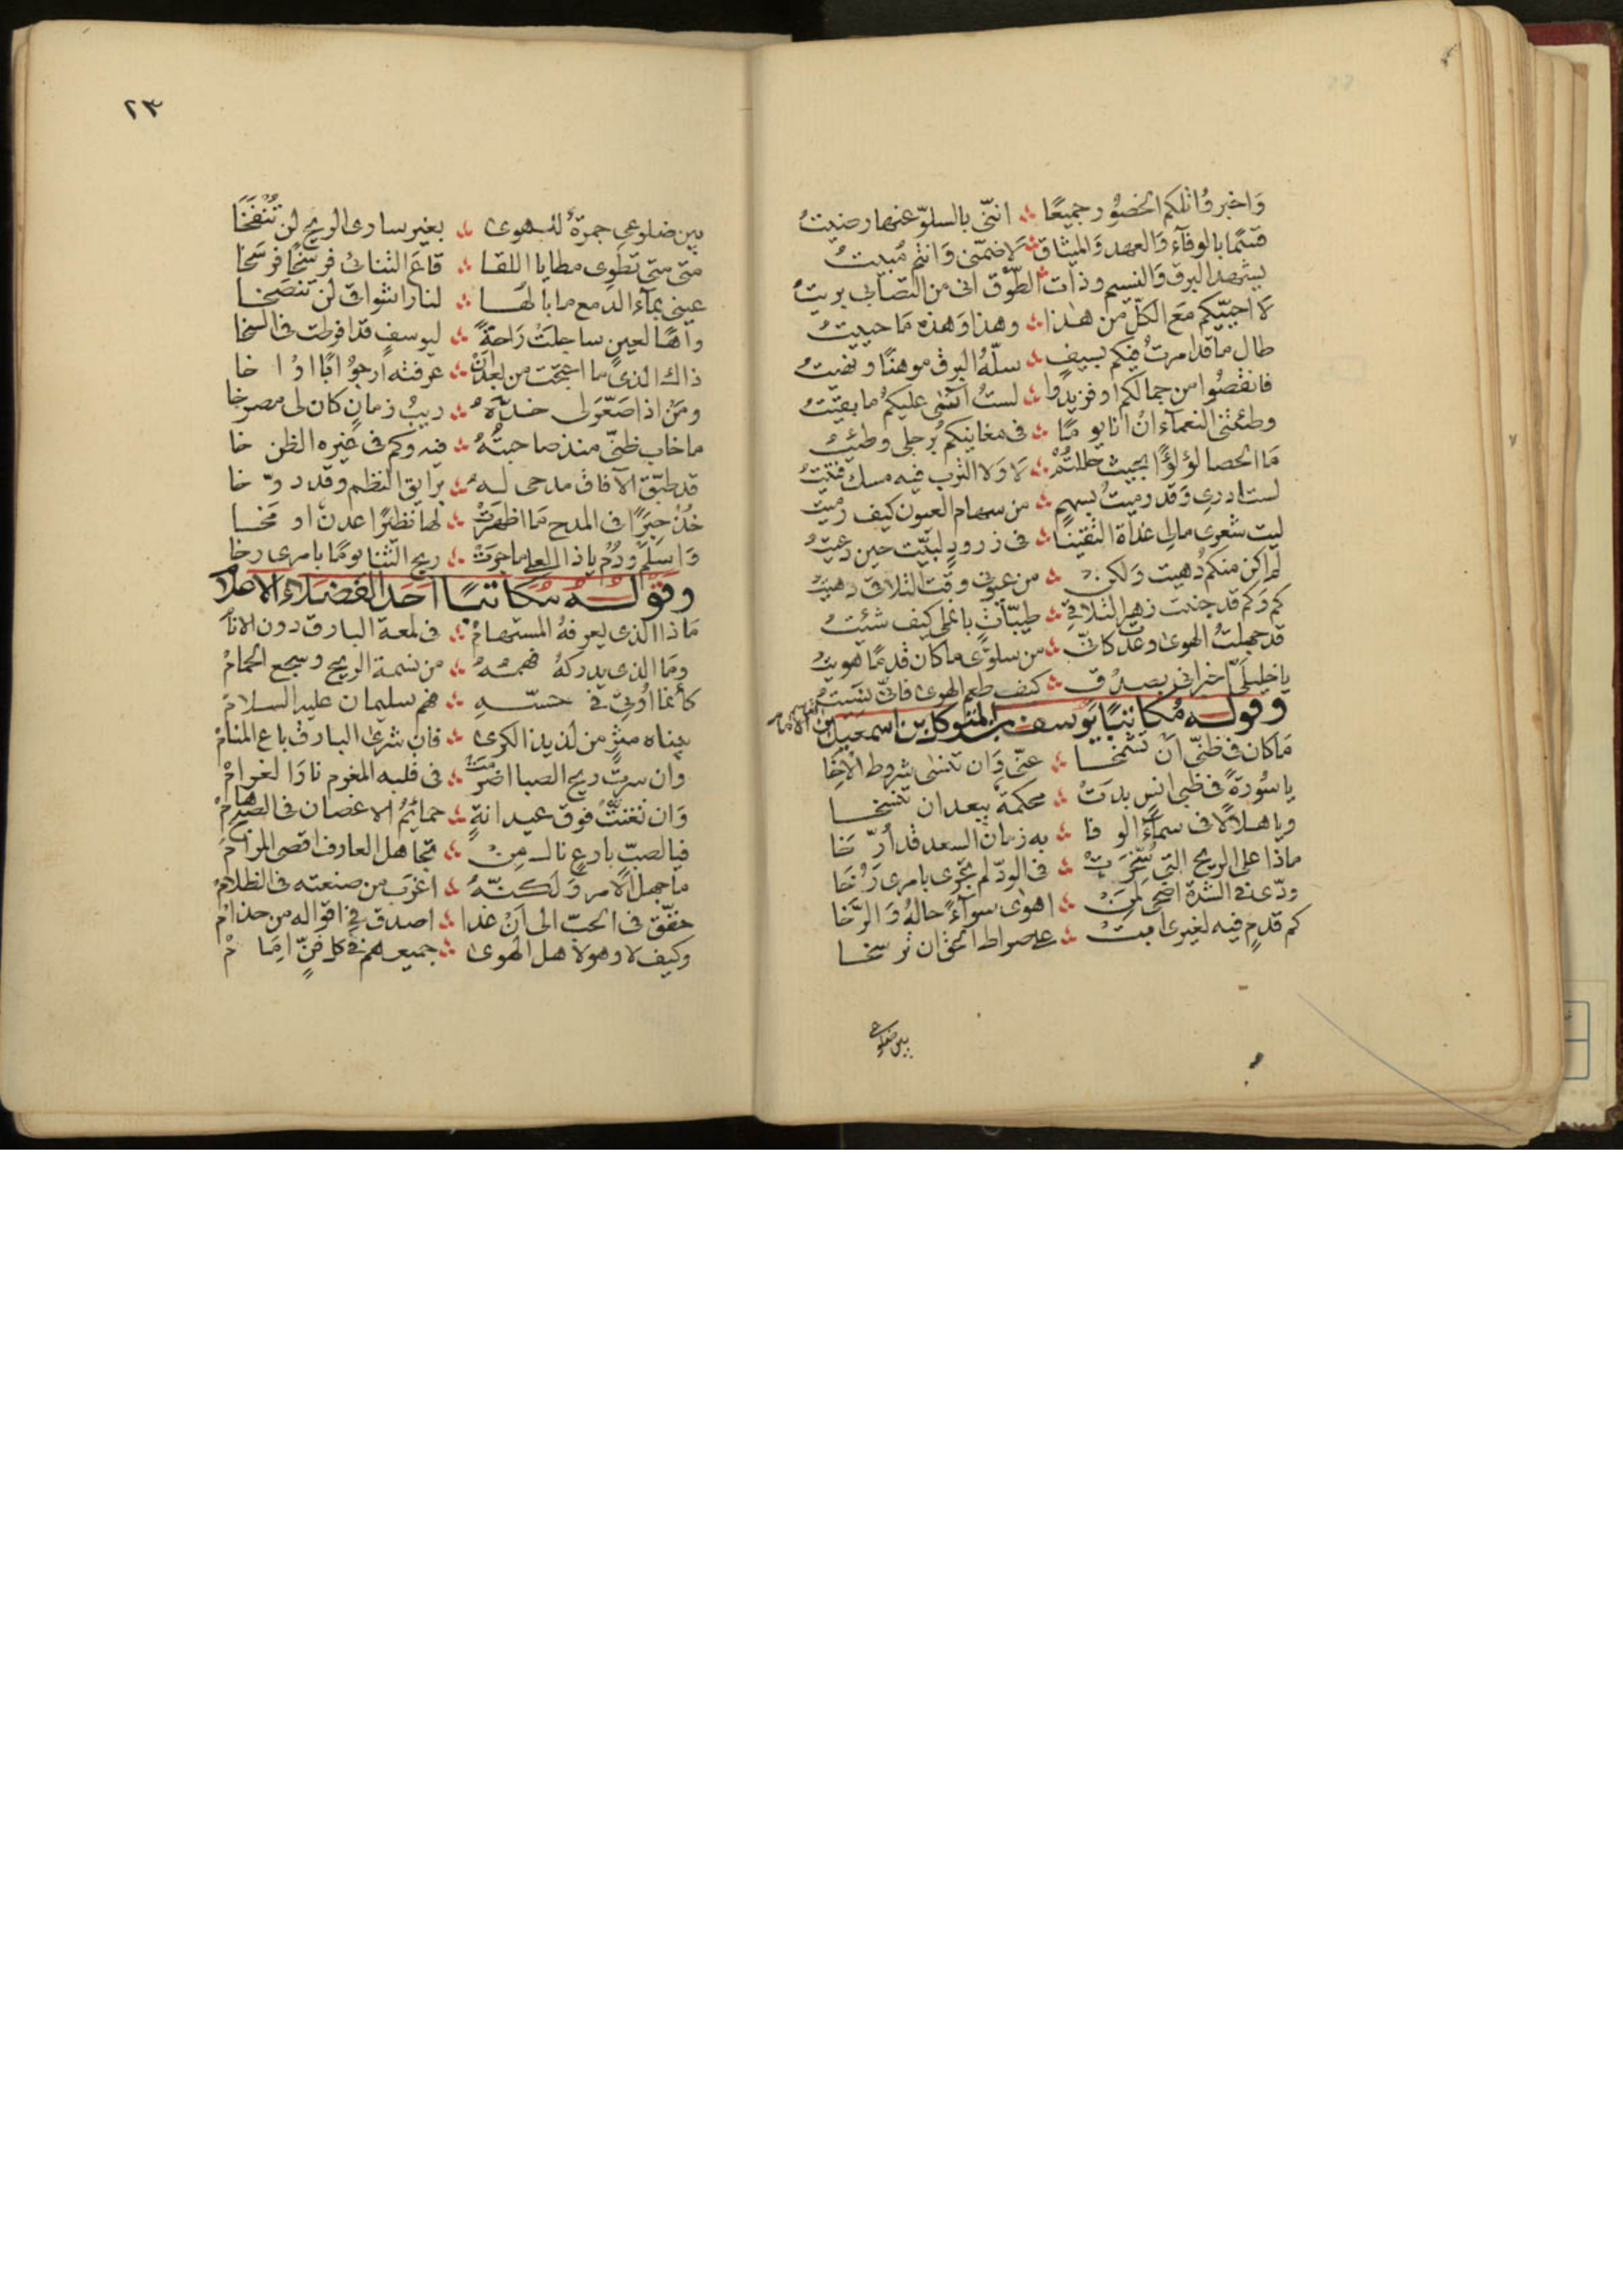 واخبروا تلكم الخصور جميعًا ؞ انني بالسلوّ عنها رضيتُ
قسمًا بالوفآء والعهد والميثاق ؞ لا ضمّني وانتم مُبيتُ
يشهد البرق والنسيم وذات ؞ الطّوق اني من التصابي بريتُ
لا احيّيكم مع الكلّ من هذا ؞ وهذا وهذه ما حييتُ
طال ما قد امرتُ فيكم بسيفٍ ؞ سلّهُ البرق موهنًا ونهيتُ
فانقصُوا من جمالكم او فزيدُوا ؞ لستُ اثني عليكمُ ما بقيتُ
وطئتني النعمآء ان انا يومًا ؞ في مغانيكمُ برجلي وطئتُ
ما الحصا لؤلؤًا بحيث حللتُمْ ؞ لا ولا الترب فيه مسك فتيتُ
لست ادري وقد رميتُ بسهمٍ ؞ من سهام العيون كيف رُميتُ
ليت شعري مالي غداة التقينا ؞ في زرودٍ لبّيت حين دعيتُ
لم اكن منكم دُهيت ولكن ؞ من عيوني وقت التلاقي دهيتُ
كم وكم قد جنت زهر التلاقي ؞ طيّباتٍ يا نملي كيف شئتُ
قد جهلتُ الهوى وعدت كاني ؞ من سلوّي ما كان قدمًا هويتُ
يا خليليّ اخبراني بصدْقٍ ؞ كيف طعم الهوى فاني نسيتُ
وقوله مُكاتبًا يوسف بن المتوكل بن اسمعيل بن الامام القاسم
ما كان في ظنّي ان تشمخا ؞ عنّي وان تنسى شروط الاخا
يا سُورةً في ظبي انسٍ بدتْ ؞ محكمةً يبعد ان تنسخا
ويا هلالًا في سمآء الوفا ؞ به زمان السعد قد أرّخا
ماذا على الريح التي سُخّرتْ ؞ في الودّ لم تجري بامري رُخا
ودّي في الشدة اضحى لمنْ ؞ اهوى سوآءً حالهُ والرّخا
كم قدمٍ فيه لغيري ابتْ ؞ على صراط الحق ان ترسخا
بين ضلوعي
٢٣
بين ضلوعي جمرةٌ للهوى ؞ بغير ساري الريح لن تُنْفَخَا
متى متى تطوى مطايا اللقا ؞ قاع التنائي فرسخًا فرسخا
عيني بمآء الدمع ما بالها ؞ لنار اشواقي لن تنضخا
واهًا لعينٍ ساجلتْ راحةً ؞ ليوسفٍ قد افرطت في السخا
ذاك الذي ما انجبت من بعد انْ ؞ عرفته ارجوُ ابًا او اخا
ومنْ اذا صعّر لي خدّهُ ؞ ريبُ زمانٍ كان لي مصرخا
ما خاب ظنّي منذ صاحبتُهُ ؞ فيه وكم في غيره الظن خا
قد طبّق الآفاق مدحي لهُ ؞ برايق النظم وقد دوّخا
خذْ حبرًا في المدح ما اظهرتْ ؞ لها نظيرًا عدنٌ او مخا
واسلم ودُم يا ذا العلى ما جرتْ ؞ ريح الثنا يومًا بامري رخا
وقوله مكاتبًا احد الفضلاء الاعلام
ماذا الذي يعرفهُ المستهامْ ؞ في لمعة البارق دون الانام
وما الذي يدركهُ فهمُهُ ؞ من نسمة الريح وسجع الحمامْ
كأنما اُوتي في حسّهِ ؞ فهم سليمان عليه السلامْ
عيناه مثرٍ من لذيذ الكرى ؞ فان شرى البارق باع المنامْ
وان سرتْ ريح الصبا اضرمتْ ؞ في قلبه المغرم نار الغرامْ
وان تغنّتْ فوق عيدانةٍ ؞ حمائمُ الاغصان في الصبّ هامْ
فيا لصبٍّ بارعٍ نال مِنْ ؞ تجاهل العارف اقصى المرامْ
ما جهل الامر ولكنّهُ ؞ اغرب من صنعته في الظلامْ
حقّق في الحبّ الى ان غدا ؞ اصدق في اقواله من حذامْ
وكيف لا وهو لاهل الهوى ؞ جميعهم في كل فنٍّ امامْ